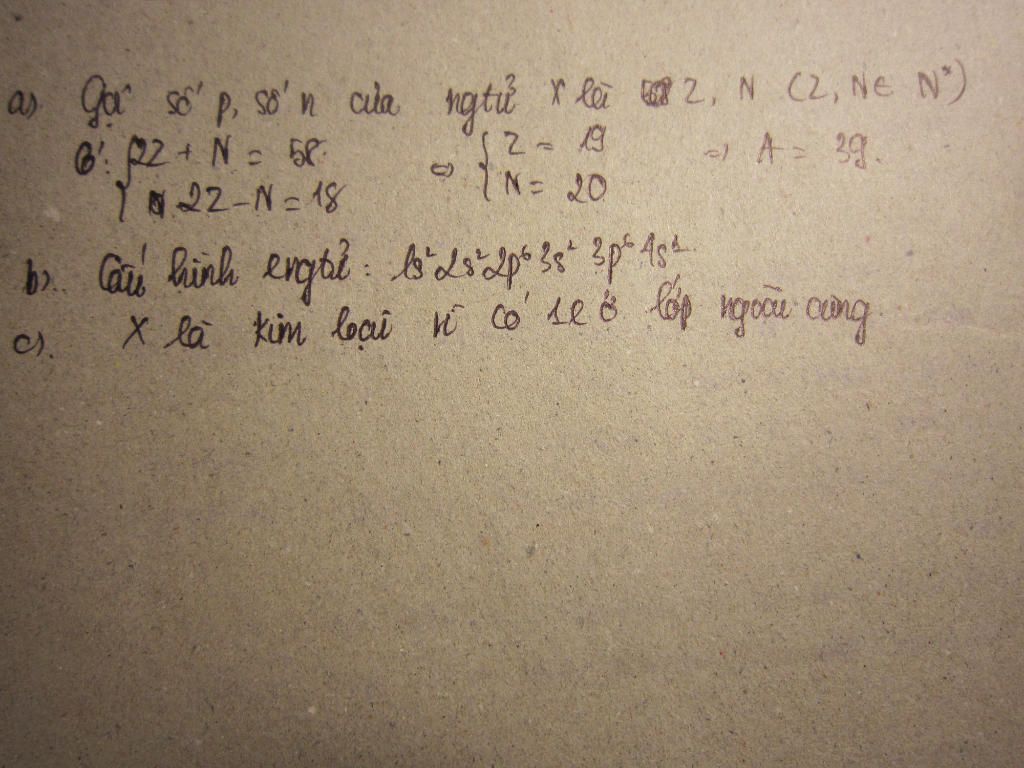 a) Gọi số p, số n của ngtử X là Z, N (Z, N ∈ N*)
Có: { 2Z + N = 58 <=> { Z = 19 => A = 39.
2Z - N = 18 N = 20
b). Cấu hình engtử: 1s² 2s² 2p⁶ 3s² 3p⁶ 4s¹
c). X là kim loại vì có 1e ở lớp ngoài cùng.